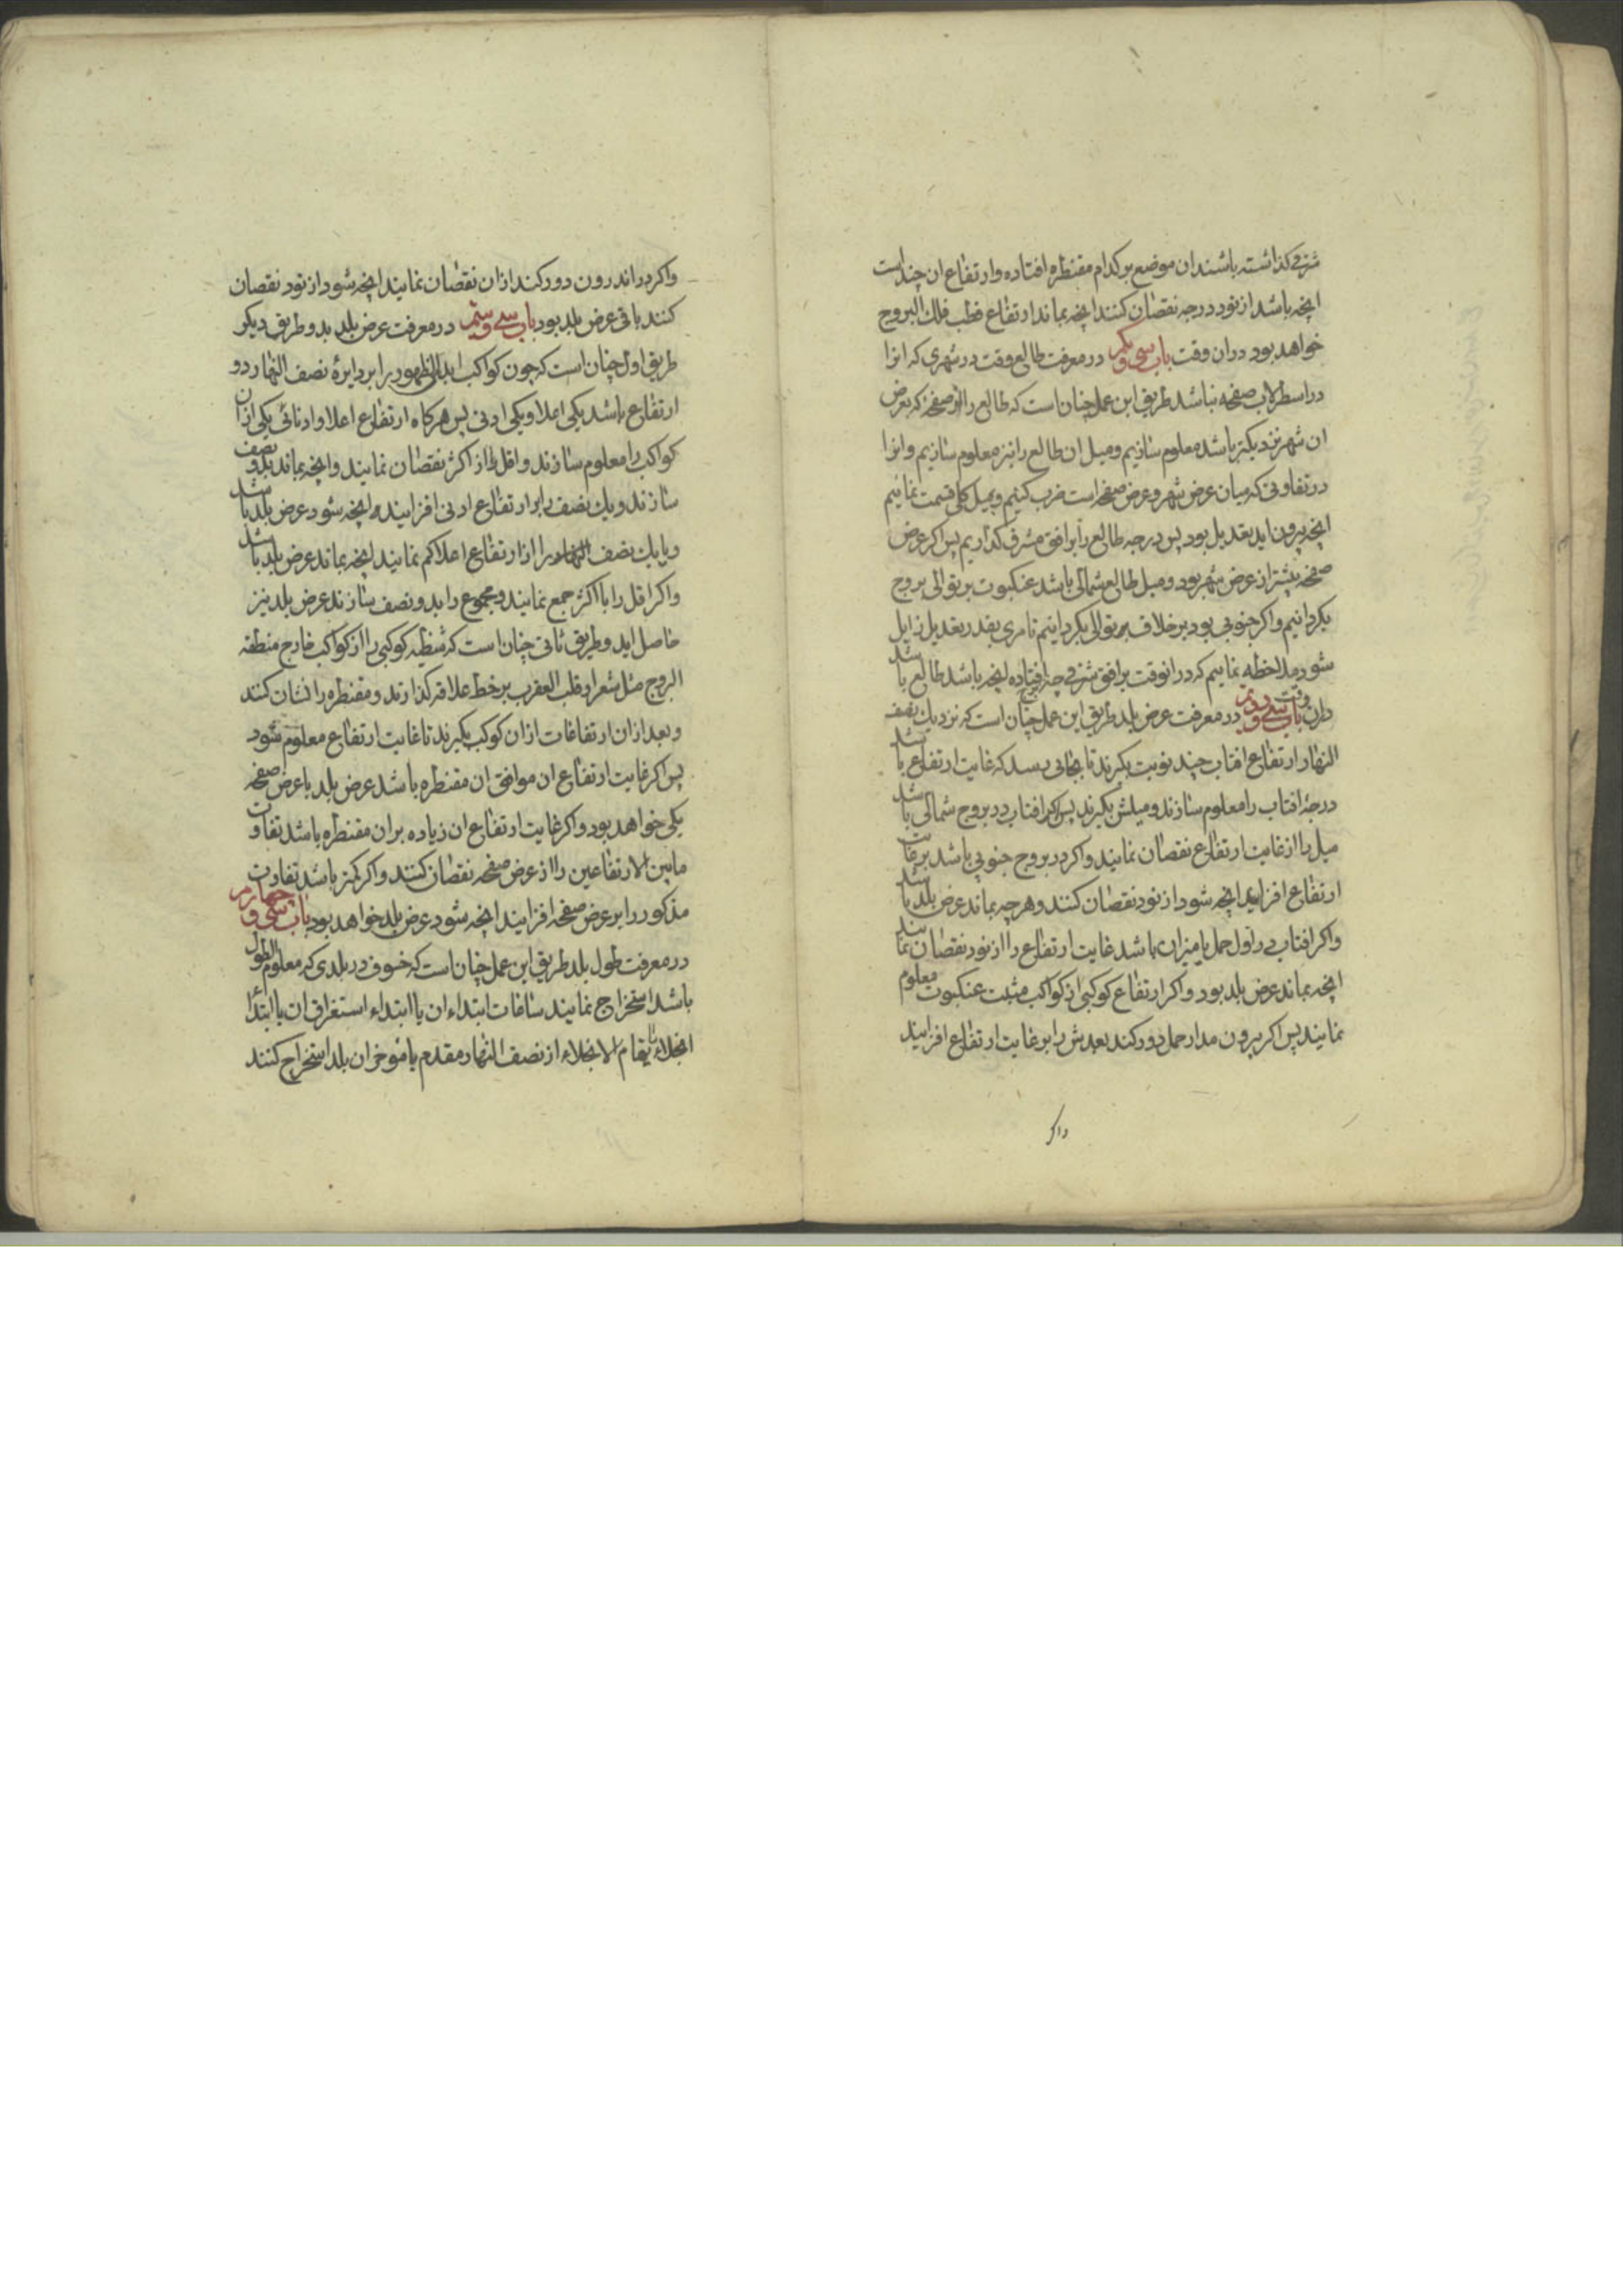 شرقی کذاشته باشند ان موضع بر کدام مقنطره افتاده وارتفاع ان چند است
انچه باشد از نود درجه نقصان کنند انچه بماند ارتفاع قطب فلک البروج
خواهد بود دران وقت باب سی و یکم در معرفت طالع وقت در شهری که انرا
در اسطرلاب صفحه نباشد طریق این عمل چنان است که طالع را از صفحه که بعرض
ان شهر نزدیکتر باشد معلوم سازیم و میل ان طالع را نیز معلوم سازیم وانرا
در تفاوتی که میان عرض شهر و عرض صفحه است ضرب کنیم و بمیل کلی قسمت نمائیم
انچه بیرون اید تعدیل بود پس درجه طالع را بر افق مشرق کذاریم پس اکر عرض
صفحه بیشتر از عرض شهر بود و میل طالع شمالی باشد عنکبوت بر توالی بروج
بکردانیم واکر جنوبی بود بر خلاف بر توالی بکردانیم تا مری بقدر تعدیل زایل
شود ملاحظه نماییم که در انوقت بر افق شرقی چه افتاده انچه باشد طالع باشد
دران وقت باب سی و دویم در معرفت عرض بلد طریق این عمل چنان است که نزدیک بنصف
النهار ارتفاع افتاب چند نوبت بکیرند تا بجائی رسد که غایت ارتفاع باشد
درجهٔ افتاب را معلوم سازند و میلش بکیرند پس اکر افتاب در بروج شمالی باشد
میل را از غایت ارتفاع نقصان نمایند واکر در بروج جنوبی باشد بر غایت
ارتفاع افزایند انچه شود از نود نقصان کنند و هرچه بماند عرض بلد باشد
واکر افتاب در اول حمل یا میزان باشد غایت ارتفاع را از نود نقصان نمایند
انچه بماند عرض بلد بود واکر ارتفاع کوکبی از کواکب مثبت عنکبوت معلوم
نمایند پس اکر بیرون مدار حمل دور کند بعدش را بر غایت ارتفاع افزایند
واکر
واکر در اندرون دور کند ازان نقصان نمایند انچه شود از نود نقصان
کنند باقی عرض بلد بود باب سی و سیم در معرفت عرض بلد بدو طریق دیکر
طریق اول چنان است که چون کواکب ابدی الظهور را بر دایرهٔ نصف النهار دو
ارتفاع باشد یکی اعلا ویکی ادنی پس هرکاه ارتفاع اعلا وادنائی یکی ازان
کواکب را معلوم سازند و اقل را از اکثر نقصان نمایند وانچه بماند بدو نصف
سازند و یک نصف را بر ارتفاع ادنی افزایند انچه شود عرض بلد باشد
ویا یک نصف را از ارتفاع اعلا کم نمایند انچه بماند عرض بلد باشد
واکر اقل را با اکثر جمع نمایند و مجموع را بدو نصف سازند عرض بلد نیز
حاصل اید و طریق ثانی چنان است که شظیه کوکبی را از کواکب خارج منطقه
البروج مثل شعرا و قلب العقرب بر خط علاقه کذارند و مقنطره را نشان کنند
وبعد ازان ارتفاعات ازان کوکب بکیرند تا غایت ارتفاع معلوم شود
پس اکر غایت ارتفاع ان موافق ان مقنطره باشد عرض بلد با عرض صفحه
یکی خواهد بود واکر غایت ارتفاع ان زیاده بران مقنطره باشد تفاوت
مابین الارتفاعین را از عرض صفحه نقصان کنند واکر کمتر باشد تفاوت
مذکور را بر عرض صفحه افزایند انچه شود عرض بلد خواهد بود باب سی و چهارم
در معرفت طول بلد طریق این عمل چنان است که خسوف در بلدی که معلوم الطول
باشد استخراج نمایند ساعات ابتداء ان یا ابتداء استغراق ان یا ابتداء
انجلاء یا تمام الانجلاء از نصف النهار مقدم یا مؤخر ان بلد استخراج کنند